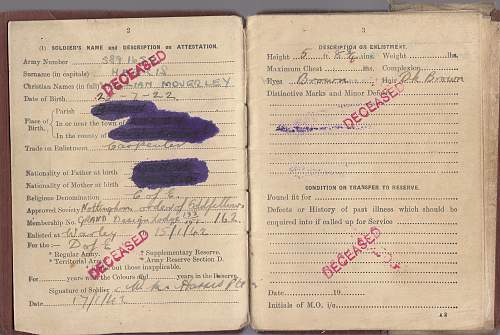 2
(1) SOLDIER'S NAME and DESCRIPTION on ATTESTATION.
Army Number
Surname (in capitals)
Christian Names (in full) WILLIAM MOVERLEY
DECEASED
Date of Birth 22
Place of Birth.
Parish
In or near the town of
In the county of
Trade on Enlistment Carpenter
Nationality of Father at birth
Nationality of Mother at birth
Religious Denomination C of E.
Approved Society Nottingham order of Oddfellows
Membership No. GRAND Design Lodge 162.
Enlisted at Warley On 15/1/42
For the :— D of E
* Regular Army. * Supplementary Reserve.
* Territorial Army * Army Reserve Section D.
but those inapplicable.
DECEASED
For years with the Colours and years in the Reserve.
Signature of Soldier W. M. Harris
Date 17/1/42
3
DESCRIPTION ON ENLISTMENT.
Height 5 ft. 8 3/4 ins. Weight lbs.
Maximum Chest ins. Complexion
Eyes Brown Hair Dk Brown
Distinctive Marks and Minor Defects
DECEASED
CONDITION ON TRANSFER TO RESERVE.
Found fit for
Defects or History of past illness which should be
enquired into if called up for Service
DECEASED
Date 19
Initials of M.O. i/c